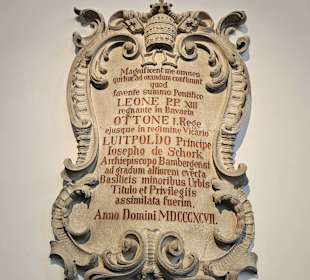 Magnificent me omnes
quibus ad orandum confluunt
quod
favente summo Pontifice
LEONE P.P. XIII
regnante in Bavaria
OTTONE I. Rege
ejusque in regimine Vicario
LUITPOLDO Principe
Iosepho de Schork
Archiepiscopo Bambergensi
ad gradum altiorem everta
Basilicis minoribus Urbis
Titulo et Privilegiis
assimilata fuerim,
Anno Domini MDCCCXCVII.